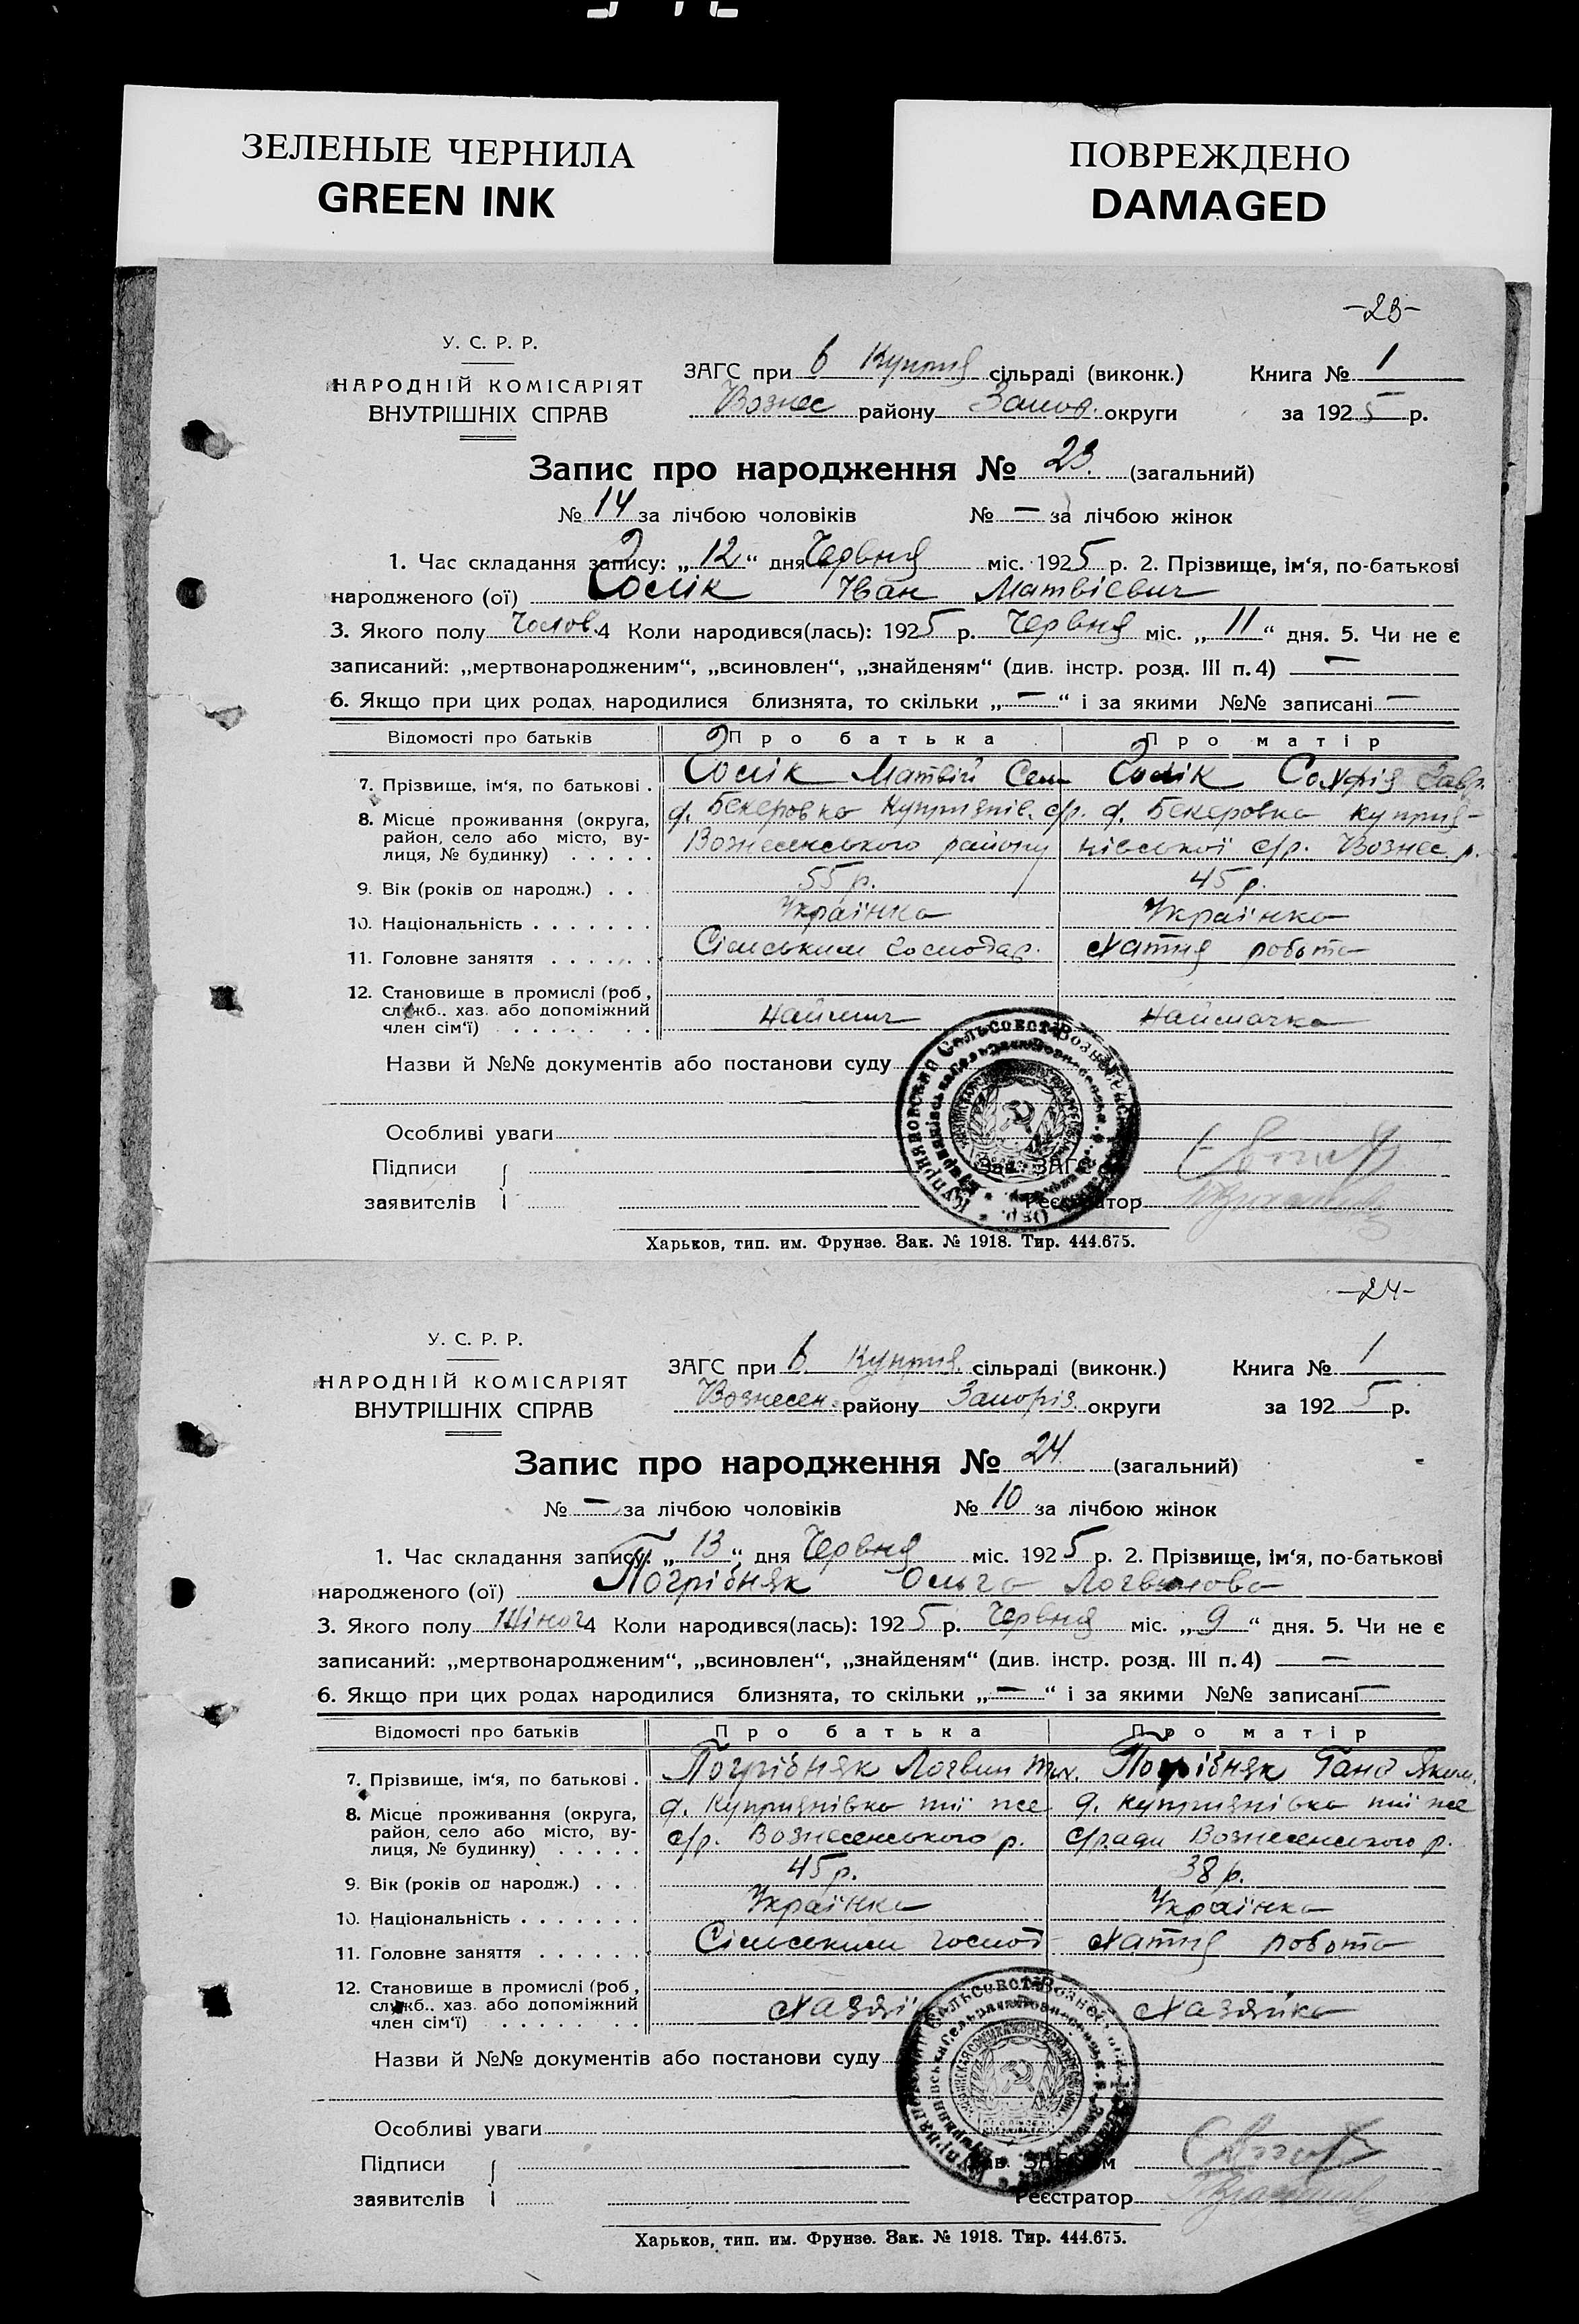 ЗЕЛЕНЫЕ ЧЕРНИЛА
GREEN INK
ПОВРЕЖДЕНО
DAMAGED
-23-
У. С. Р. Р.
НАРОДНІЙ КОМІСАРІЯТ
ВНУТРІШНІХ СПРАВ
ЗАГС при в Куприя сільраді (виконк.) Книга № 1
Вознес району Запор. округи за 1925 р.
Запис про народження № 23. (загальний)
№ 14 за лічбою чоловіків № — за лічбою жінок
1. Час складання запису: „12“ дня Червня міс. 1925 р. 2. Прізвище, ім‘я, по-батькові
народженого (ої) Іван Матвієвич
3. Якого полу Чолов. 4 Коли народився(лась): 1925 р. Червня міс. „11“ дня. 5. Чи не є
записаний: „мертвонародженим“, „всиновлен“, „знайденям“ (див. інстр. розд. III п. 4) —
6. Якщо при цих родах народилися близнята, то скільки „—“ і за якими №№ записані —
Відомості про батьків Про батька Про матір
7. Прізвище, ім‘я, по батькові . Матвій Сем Софія Лавр.
8. Місце проживання (округа, д. Бекеровка Куприянів. с/р. д. Бекеровка куприя-
район, село або місто, ву- Вознесенського району нівської с/р. Вознес. р.
лиця, № будинку) . . . . .
9. Вік (років од народж.) . . 55 р. 45 р.
10. Національність . . . . . . . Українка Українка
11. Головне заняття . . . . . . Сільським господар. Хатня робота
12. Становище в промислі (роб.,
служб.. хаз. або допоміжний Наймич Наймачка
член сім‘ї) . . . . . . .
Назви й №№ документів або постанови суду
Особливі уваги
Підписи Зав. ЗАГС
заявителів Реєстратор
Харьков, тип. им. Фрунзе. Зак. № 1918. Тир. 444.675.
-24-
У. С. Р. Р.
НАРОДНІЙ КОМІСАРІЯТ
ВНУТРІШНІХ СПРАВ
ЗАГС при в Куприя. сільраді (виконк.) Книга № 1
Вознесен. району Запоріз. округи за 1925 р.
Запис про народження № 24. (загальний)
№ — за лічбою чоловіків № 10 за лічбою жінок
1. Час складання запису: „13“ дня Червня міс. 1925 р. 2. Прізвище, ім‘я, по-батькові
народженого (ої) Погрібняк Ольга Логвинова
3. Якого полу Жіноч 4 Коли народився(лась): 1925 р. Червня міс. „9“ дня. 5. Чи не є
записаний: „мертвонародженим“, „всиновлен“, „знайденям“ (див. інстр. розд. III п. 4) —
6. Якщо при цих родах народилися близнята, то скільки „—“ і за якими №№ записані —
Відомості про батьків Про батька Про матір
7. Прізвище, ім‘я, по батькові . Погрібняк Логвин Погрібняк Гана Яким.
8. Місце проживання (округа, д. Куприянівка тиї же д. Куприянівка тиї же
район, село або місто, ву- с/р. Вознесенського р. с/ради Вознесенського р.
лиця, № будинку) . . . . .
9. Вік (років од народж.) . . 45 р. 38 р.
10. Національність . . . . . . . Українка Українка
11. Головне заняття . . . . . . Сільським господ Хатня робота
12. Становище в промислі (роб.,
служб.. хаз. або допоміжний Хазяї Хазяйка
член сім‘ї) . . . . . . .
Назви й №№ документів або постанови суду
Особливі уваги
Підписи
заявителів Реєстратор
Харьков, тип. им. Фрунзе. Зак. № 1918. Тир. 444.675.